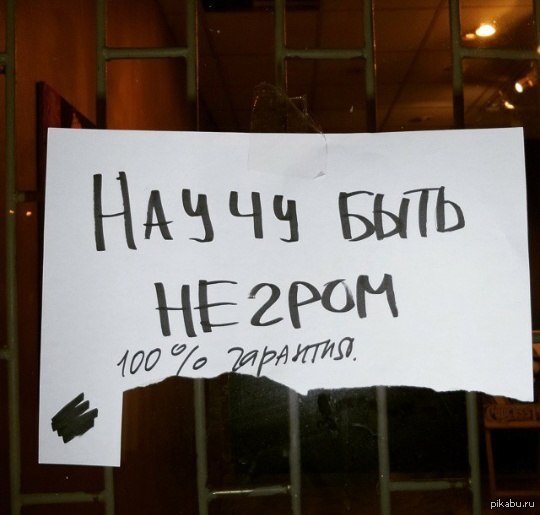 Научу быть
негром
100% гарантия.
pikabu.ru